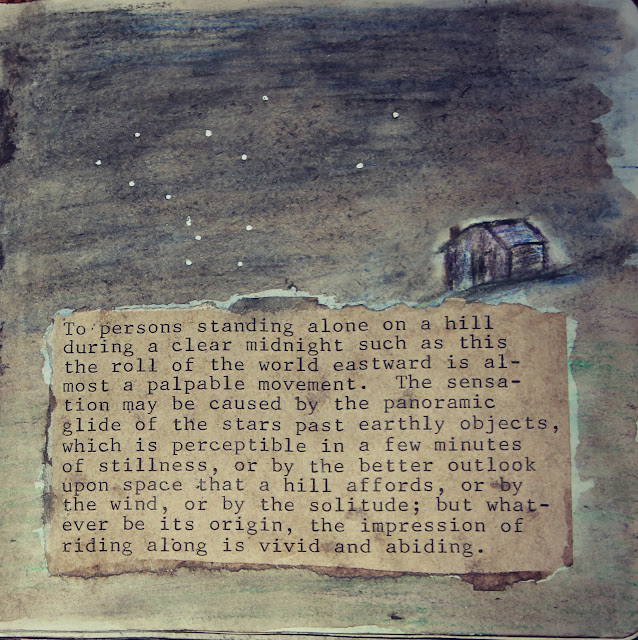 To persons standing alone on a hill
during a clear midnight such as this
the roll of the world eastward is al-
most a palpable movement. The sensa-
tion may be caused by the panoramic
glide of the stars past earthly objects,
which is perceptible in a few minutes
of stillness, or by the better outlook
upon space that a hill affords, or by
the wind, or by the solitude; but what-
ever be its origin, the impression of
riding along is vivid and abiding.